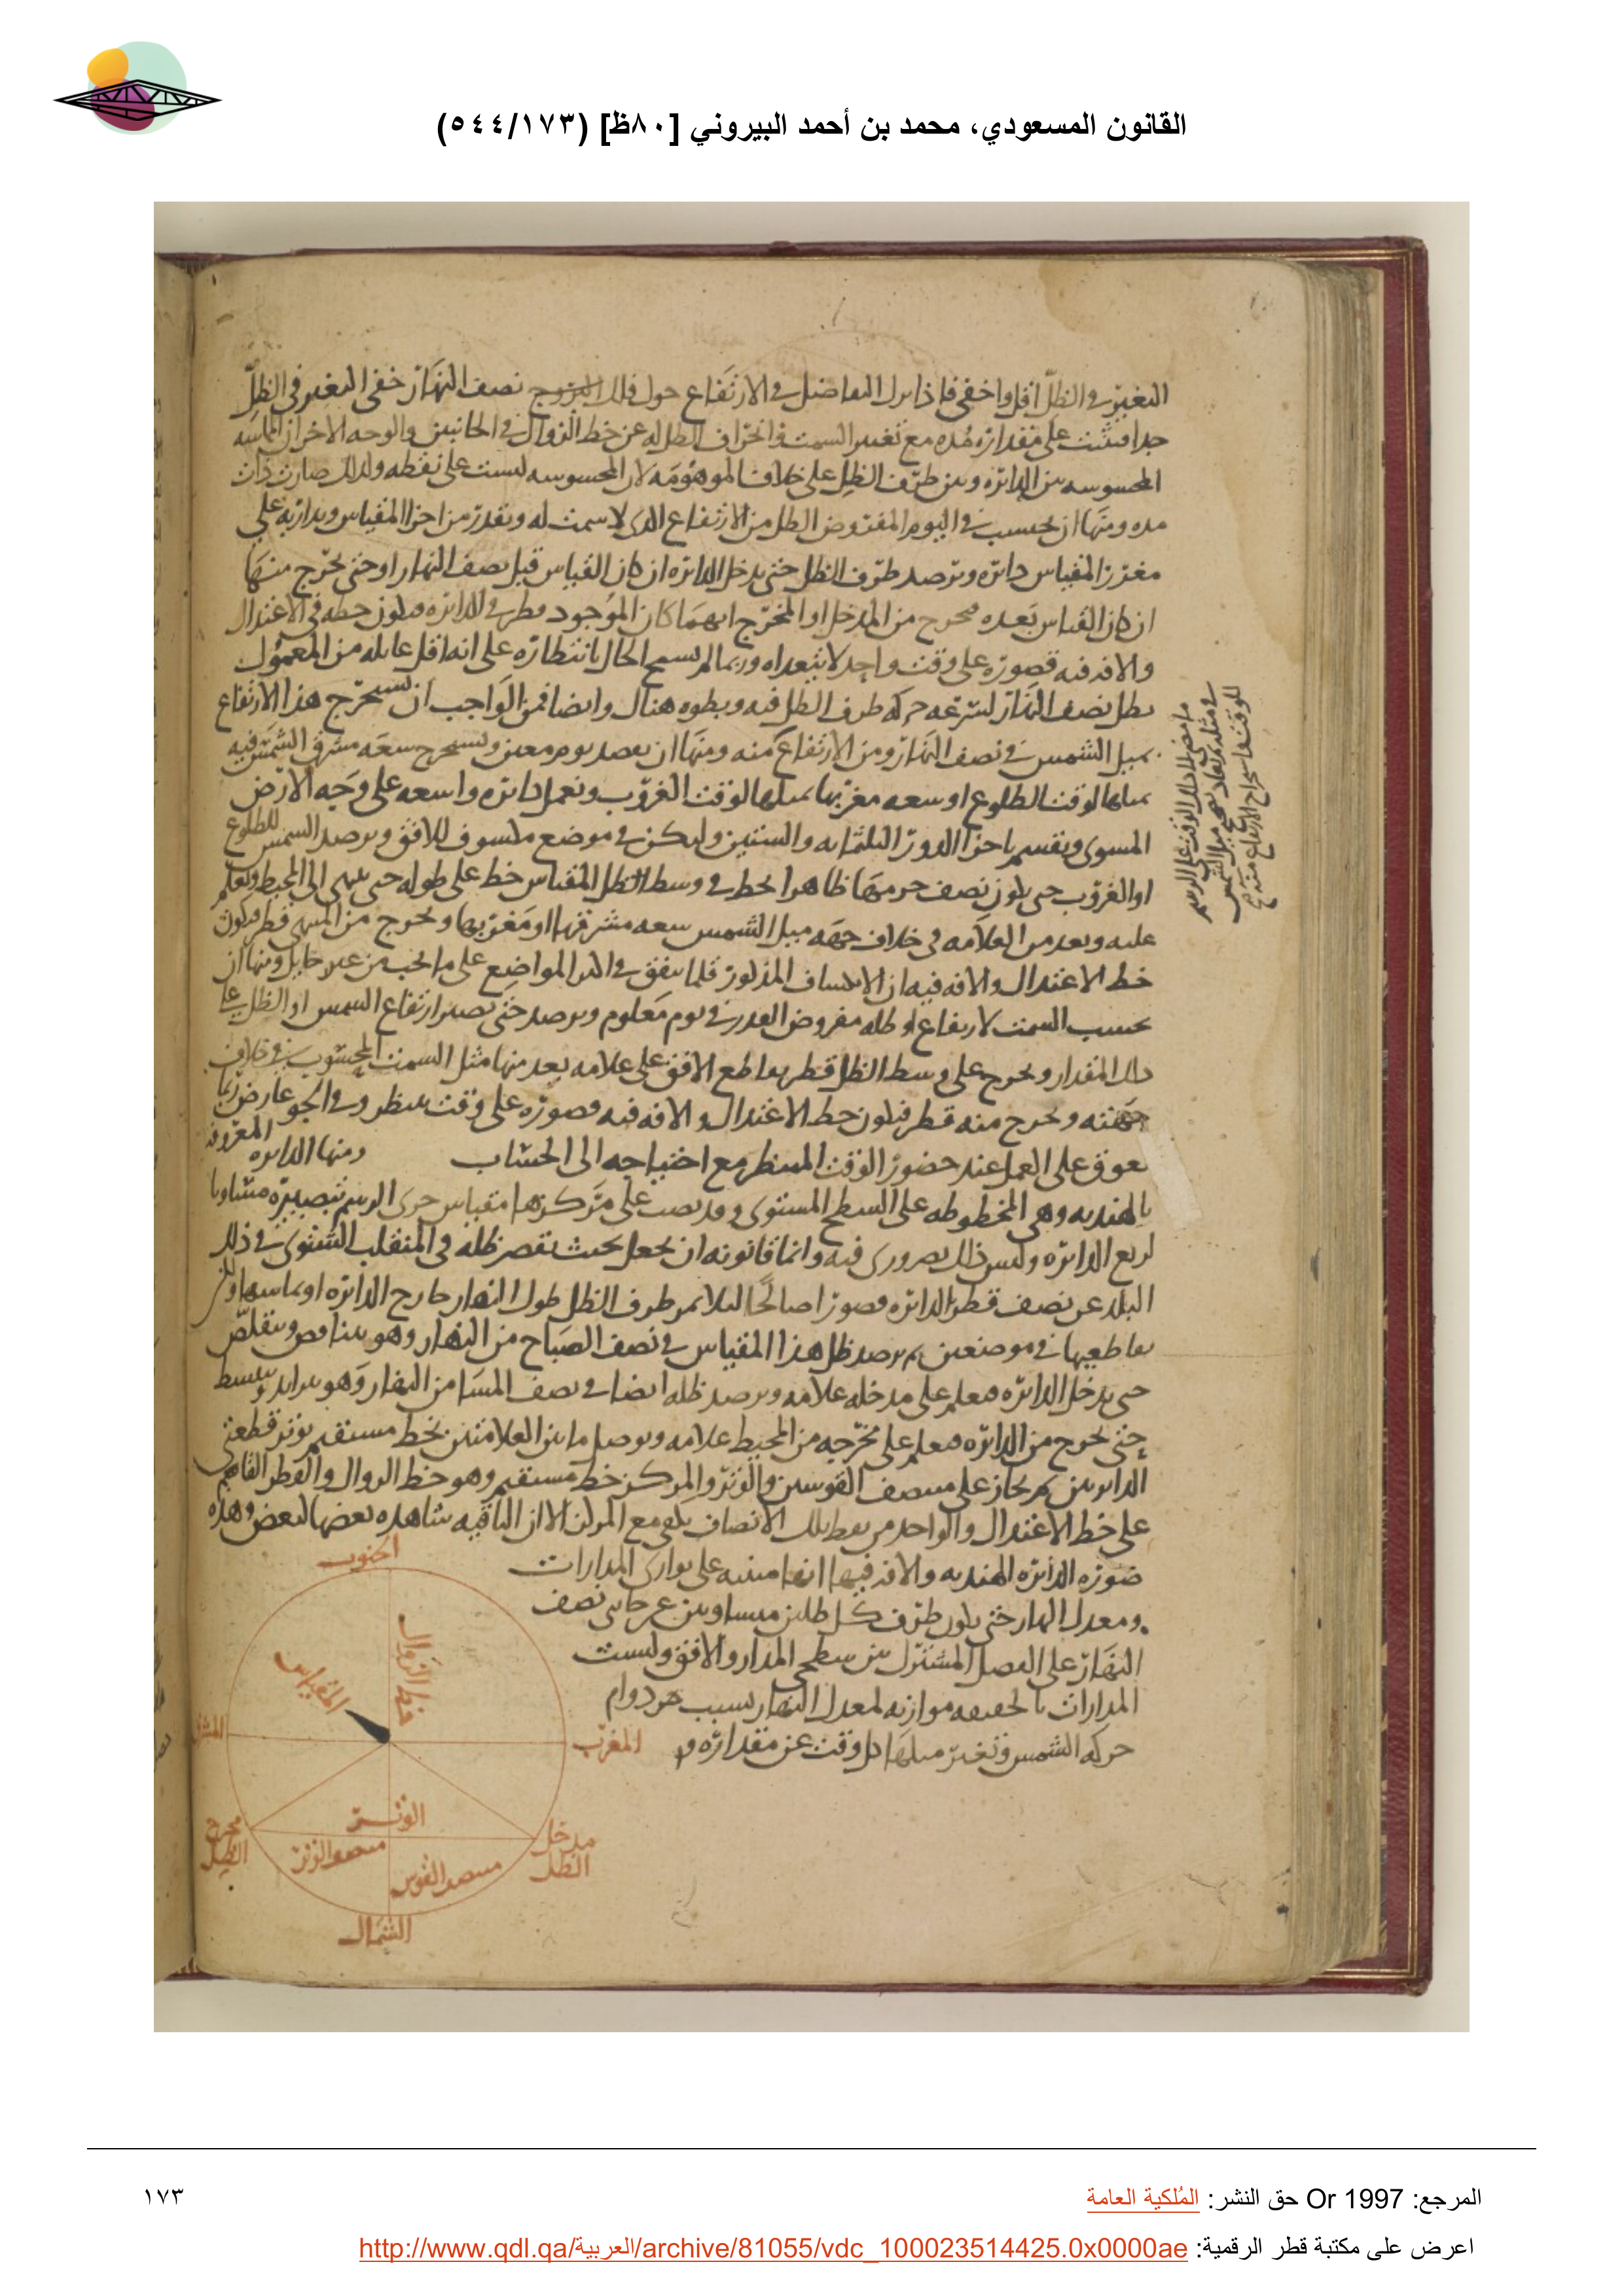 القانون المسعودي، محمد بن أحمد البيروني [٨٠ظ] (٥٤٤/١٧٣)
التغير في الظل اقل واخفى فاذا ترك التفاضل في الارتفاع حول فلك البروج نصف النهار خفى التغير في الظل
جدا فيثبت على مقداره مده مع تغير السمت وانحراف الظل له عن خط الزوال في الجانبين والوجه الاخر ان المماسه
المحسوسه بين الدائره وبين طرف الظل على خلاف الموهومه لان المحسوسه ليست على نقطه ولذلك صارت ذات
مده ومنها ان يحسب في اليوم المفروض الظل من الارتفاع الذى لا سمت له وبقدر من اجزا المقياس ويدار به على
مغرز المقياس دائره ويرصد طرف الظل حتى يدخل الدائره ان كان القياس قبل نصف النهار او حتى يخرج منها
ان كان القياس بعده فيخرج من المدخل او المخرج ايهما كان الموجود قطر في الدائره فيكون خطه في الاعتدال
والافه فيه قصوره على وقت واحد لا يتعداه وربما لم يسمح الحال بانتظاره على انه اقل غايله من المعمول
بظل نصف النهار لسرعه حركه طرف الظل فيه وبطوه هناك وايضا فمن الواجب ان يستخرج هذا الارتفاع
بميل الشمس في نصف النهار ومن الارتفاع منه ومنها ان يعمد يوم معين ويستخرج سعه مشرق الشمس فيه
بميلها لوقت الطلوع او سعه مغربها بميلها لوقت الغروب ونعمل دائره واسعه على وجه الارض
المسوى ويقسم باجزا الدور الثلثمايه والستين وليكن في موضع مكشوف للافق ويرصد الشمس للطلوع
او الغروب حتى يكون نصف جرمها ظاهرا يخط في وسط الظل المقياس خط على طوله حتى ينتهى الى المحيط ويعلم
عليه ويعد من العلامه في خلاف جهه ميل الشمس سعه مشرقها او مغربها ويخرج من المنتهى قطر فيكون
خط الاعتدال والافه فيه ان الانكشاف المذكور قلما يتفق في اكثر المواضع على ما يجب من غير حايل ومنها ان
يحسب السمت لارتفاع او ظله مفروض القدر في يوم معلوم ويرصد حتى يصير ارتفاع الشمس او الظل على
ذلك المقدار ويخرج على وسط الظل قطر يقاطع الافق على علامه يعد منها مثل السمت المحسوب في خلاف
جهته ويخرج منه قطر فيكون خط الاعتدال والافه فيه قصوره على وقت ينتظر وفي الجو عارض ربما
يعوق على العمل عند حضور الوقت المنتظر مع احتياجه الى الحساب ومنها الدائره المعروفه
بالهنديه وهى المخطوطه على السطح المستوى وقد نصب على مركزها مقياس جرى الرسم بتصييره مساويا
لربع الدائره وليس ذلك بضرورى فيه وانما قانونه ان يجعل بحيث يقصر ظله في المنقلب الشتوى في ذلك
البلد عن نصف قطر الدائره قصورا صالحا لئلا يمر طرف الظل طول النهار خارج الدائره او يماسها ولكن
يقاطعها في موضعين ثم يرصد ظل هذا المقياس في نصف الصباح من النهار وهو يتناقص ويتقلص
حتى يدخل الدائره فيعلم على مدخله علامه ويرصد ظله ايضا في نصف المسا من النهار وهو يتزايد وينبسط
حتى يخرج من الدائره فيعلم على مخرجه من المحيط علامه ويوصل ما بين العلامتين بخط مستقيم يوتر قطعتى
الدائرتين ثم يجاز على منتصف القوسين والوتر والمركز خط مستقيم وهو خط الزوال والقطر القايم
على خط الاعتدال والواحد من نقط تلك الانصاف يكفى مع المركز الا ان الباقيه شاهده بعضها لبعض وهذه
صوره الدائره الهنديه والافه فيها انها مبنيه على توازى المدارات
ومعدل النهار حتى يكون طرف كل ظلين متساويين عن جانبى نصف
النهار على الفصل المشترك بين سطحى المدار والافق وليست
المدارات بالحقيقه موازيه لمعدل النهار بسبب دوام
حركه الشمس وتغير ميلها كل وقت عن مقداره و
الجنوب
خط الزوال
المقياس
المشرق
المغرب
الوتر
منتصف الوتر
منتصف القوس
مدخل الظل
مخرج الظل
الشمال
المرجع: Or 1997 حق النشر: المُلكية العامة
١٧٣
اعرض على مكتبة قطر الرقمية: http://www.qdl.qa/العربية/archive/81055/vdc_100023514425.0x0000ae